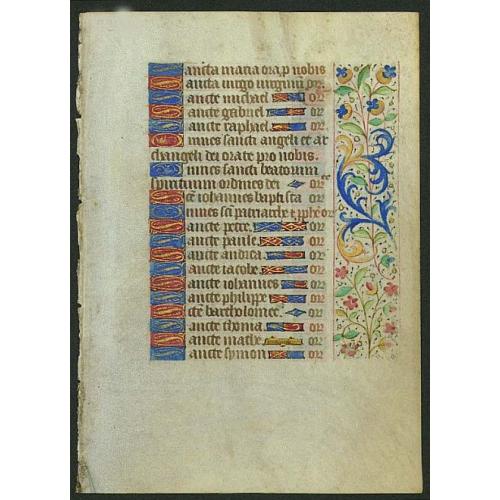 Sancta maria ora p nobis
Sancta virgo virginū or
Sancte michael or
Sancte gabriel or
Sancte raphael or
Omnes sancti angeli et ar
changeli dei orate pro nobis.
Omnes sancti beatorum
spirituum ordines dei or
Scē iohannes baptista or
Omnes scī patriarche et pphē or
Sancte petre or
Sancte paule or
Sancte andrea or
Sancte iacobe or
Sancte iohannes or
Sancte philippe or
Scē bartholomee or
Sancte thoma or
Sancte mathe or
Sancte symon or